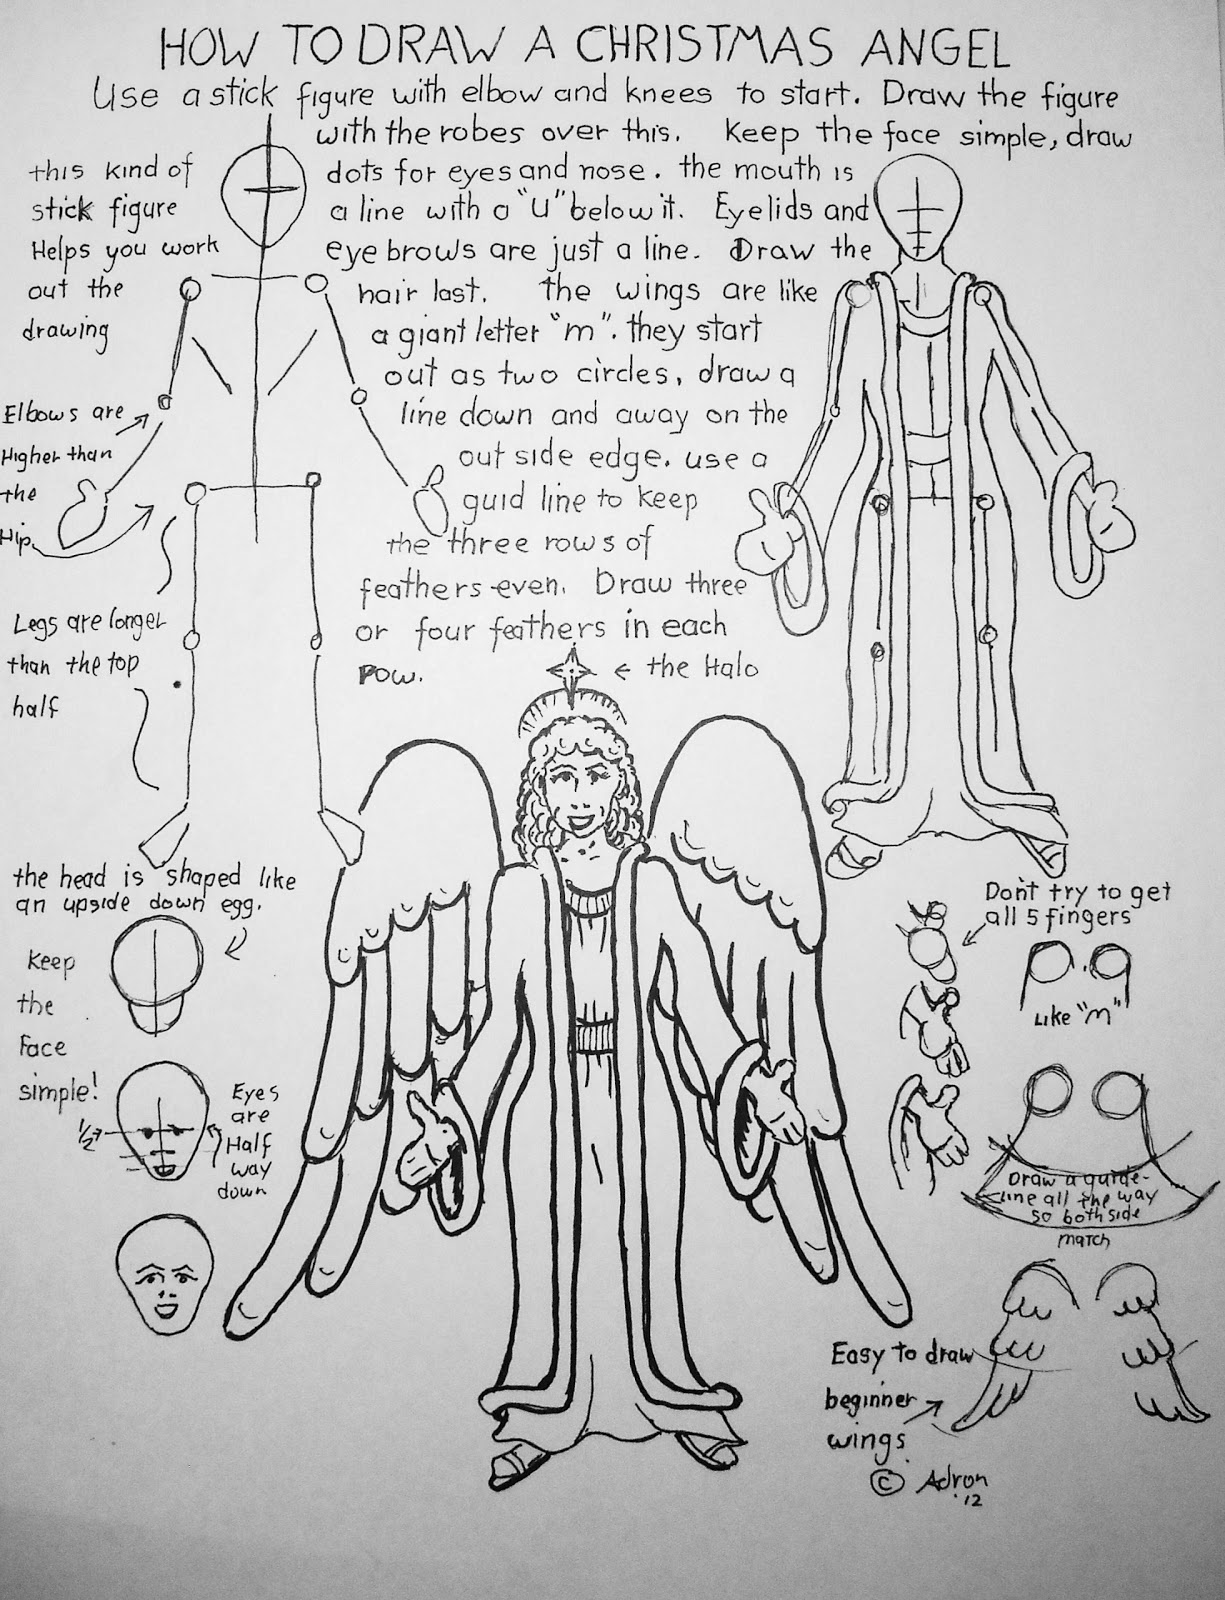 HOW TO DRAW A CHRISTMAS ANGEL
Use a stick figure with elbow and knees to start. Draw the figure
with the robes over this. Keep the face simple, draw
dots for eyes and nose. the mouth is
a line with a "U" below it. Eyelids and
eye brows are just a line. Draw the
hair last. the wings are like
a giant letter "m". they start
out as two circles, draw a
line down and away on the
out side edge. use a
guid line to keep
the three rows of
feathers even. Draw three
or four feathers in each
row.
this kind of
stick figure
Helps you work
out the
drawing
Elbows are
Higher than
the
Hip.
Legs are longer
than the top
half
← the Halo
the head is shaped like
an upside down egg.
Keep
the
Face
simple!
1/2→
Eyes
are
Half
way
down
Don't try to get
all 5 fingers
Like "m"
Draw a guide-
line all the way
so both side
match
Easy to draw
beginner
wings
© Adron
'12